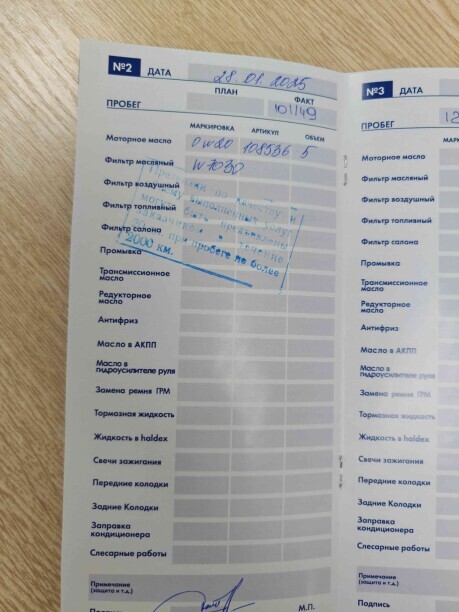 №2 ДАТА 28.01.2025
ПЛАН ФАКТ
ПРОБЕГ 101149
МАРКИРОВКА АРТИКУЛ ОБЪЕМ
Моторное масло 0w20 108536 5
Фильтр масляный W7030
Фильтр воздушный
Фильтр топливный
Фильтр салона
Промывка
Трансмиссионное
масло
Редукторное
масло
Антифриз
Масло в АКПП
Масло в
гидроусилителе руля
Замена ремня ГРМ
Тормозная жидкость
Жидкость в haldex
Свечи зажигания
Передние колодки
Задние Колодки
Заправка
кондиционера
Слесарные работы
Примечание
(защита и т.д.)
М.П.
Претензии по качеству и
объему выполненных работ
могут быть предъявлены
заказчиком в течение
при пробеге не более
2000 км.
№3 ДАТА
ПРОБЕГ
Моторное масло
Фильтр масляный
Фильтр воздушный
Фильтр топливный
Фильтр салона
Промывка
Трансмиссионное
масло
Редукторное
масло
Антифриз
Масло в АКПП
Масло в
гидроусилителе руля
Замена ремня ГРМ
Тормозная жидкость
Жидкость в haldex
Свечи зажигания
Передние колодки
Задние Колодки
Заправка
кондиционера
Слесарные работы
Примечание
(защита и т.д.)
Подпись